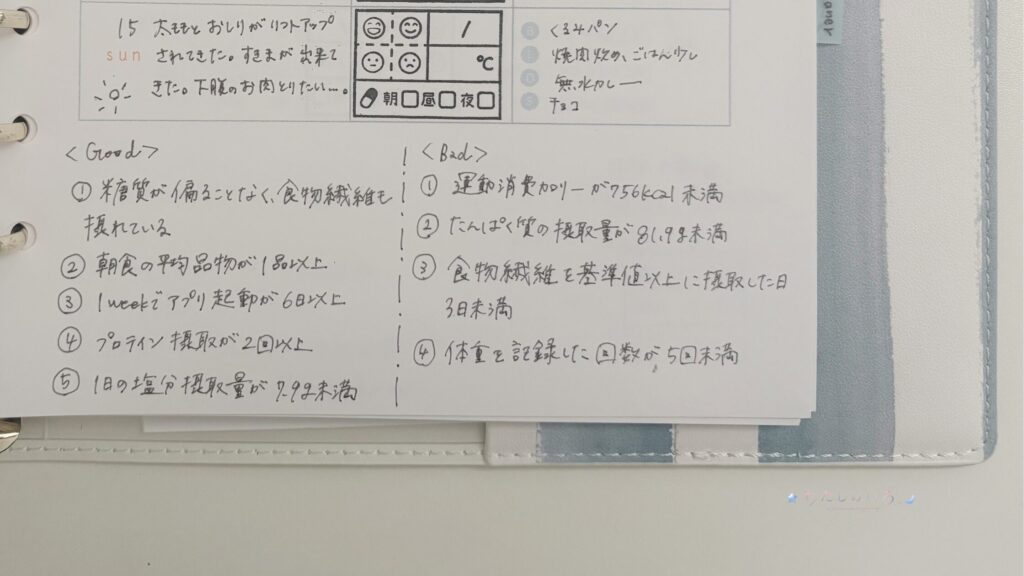 15 太ももとおしりがリフトアップ
sun されてきた。すきまが出来て
きた。下腹のお肉とりたい…。
/
℃
朝 昼 夜
くるみパン
焼肉炒め、ごはん少し
無水カレー
チョコ
<Good>
① 糖質が偏ることなく、食物繊維も
摂れている
② 朝食の平均品物が1品以上
③ 1weekでアプリ起動が6日以上
④ プロテイン摂取が2回以上
⑤ 1日の塩分摂取量が7.9g未満
<Bad>
① 運動消費カロリーが756kcal未満
② たんぱく質の摂取量が81.9g未満
③ 食物繊維を基準値以上に摂取した日
3日未満
④ 体重を記録した回数が5回未満
わたしのいろ